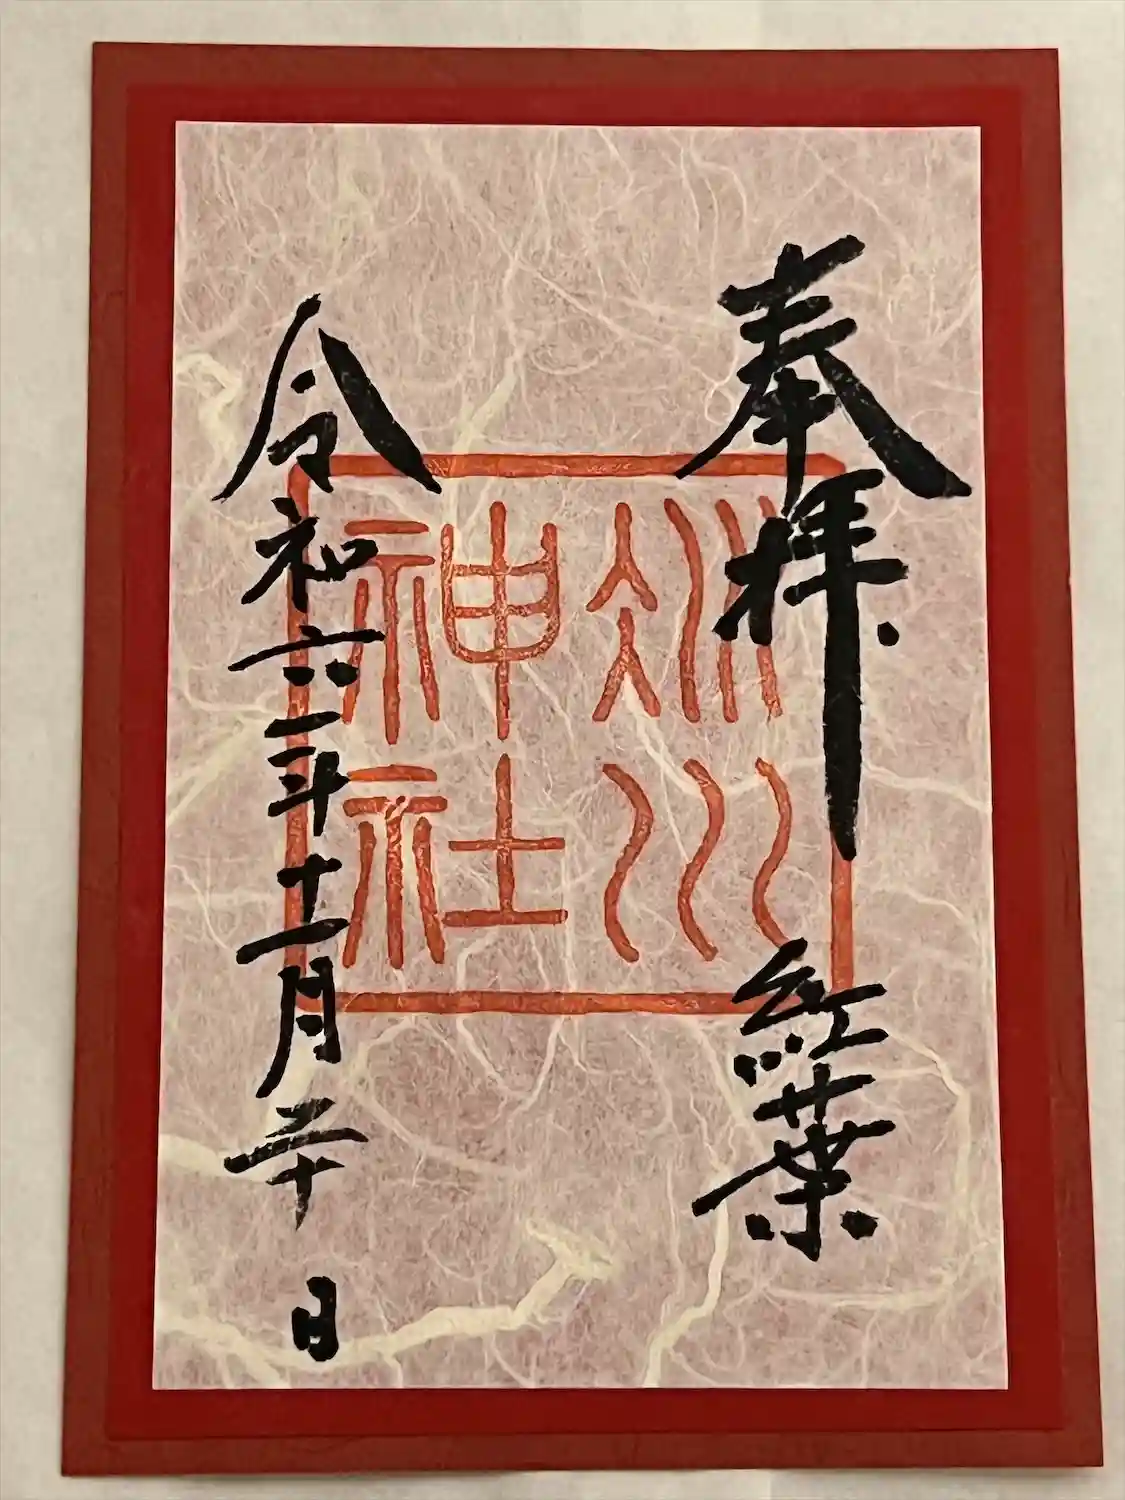 奉拝 紅葉
氷川
神社
令和六年十一月二十日